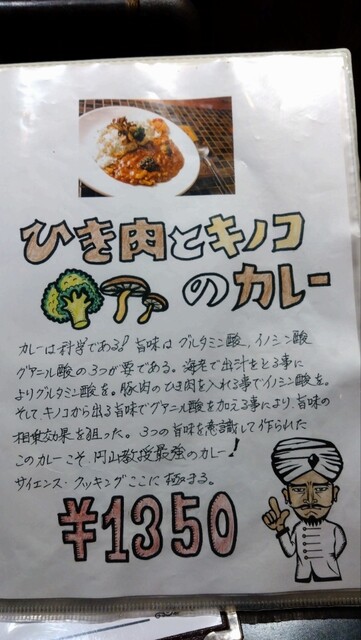 ひき肉とキノコ
のカレー
カレーは科学である!旨味はグルタミン酸、イノシン酸
グアニル酸の3つが要である。海老で出汁をとる事に
よりグルタミン酸を。豚肉のひき肉を入れる事でイノシン酸を。
そしてキノコから出る旨味でグアニル酸を加える事により、旨味の
相乗効果を狙った。3つの旨味を意識して作られた
このカレーこそ、円山教授最強のカレー!
サイエンス・クッキングここに極まる。
¥1350